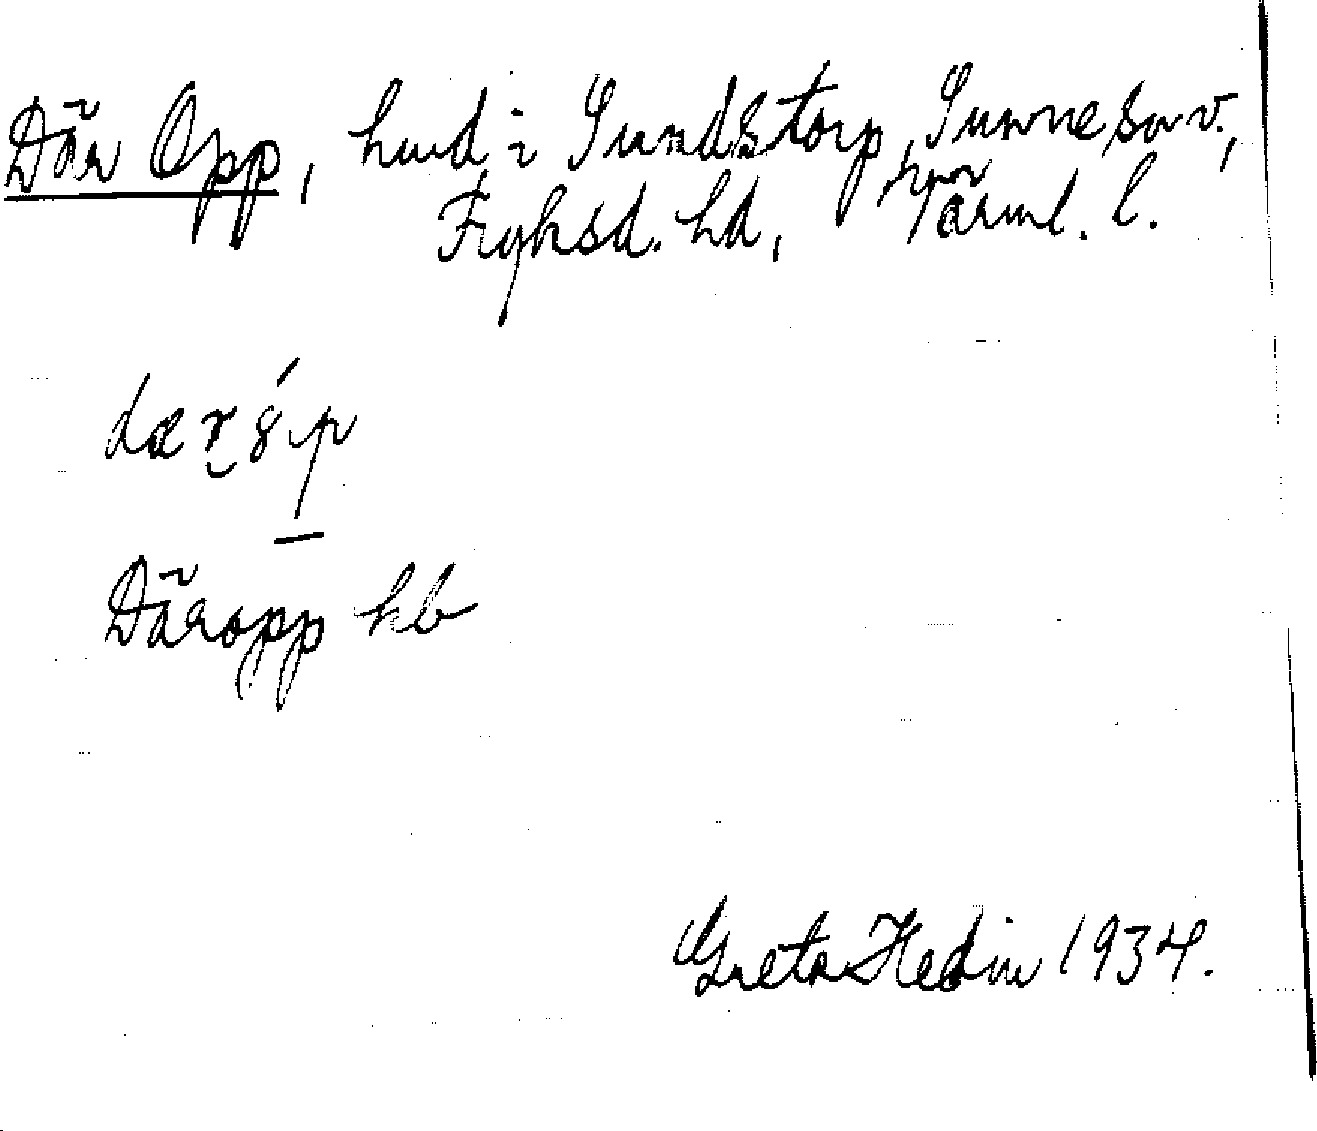 Där Opp, hmd i Sundstorp, Sunne sn v.,
Fryksd. hd, Värml. l.
dær óp
Däropp kb
Greta Hedin 1934.